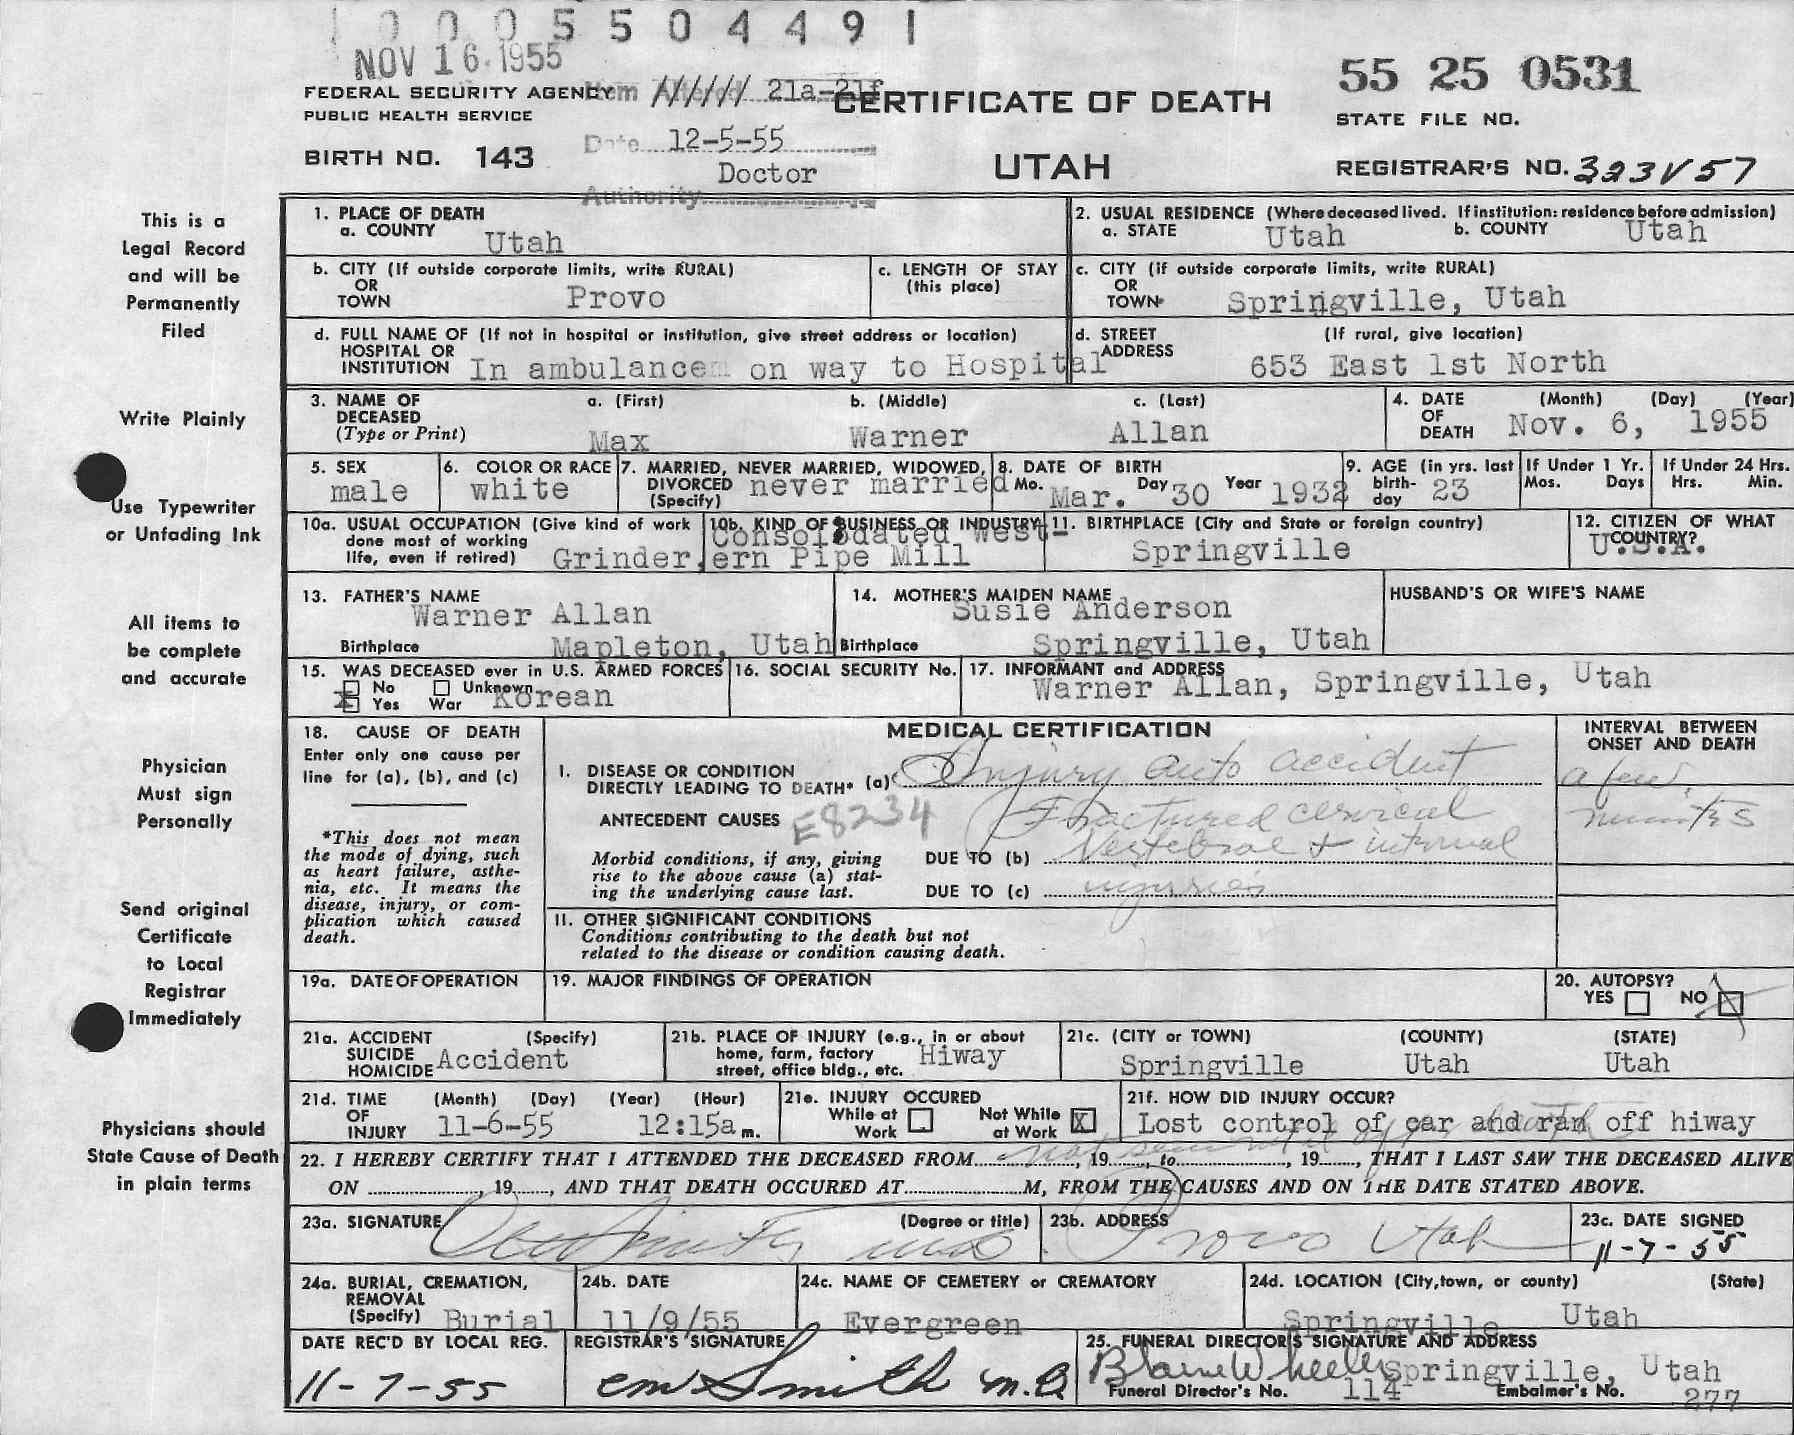 1 0 0 0 5 5 0 4 4 9 1
NOV 16 1955
55 25 0531
FEDERAL SECURITY AGENCY Item Altered ////// 21a-21f
PUBLIC HEALTH SERVICE
CERTIFICATE OF DEATH
STATE FILE NO.
Date 12-5-55
BIRTH NO. 143
Doctor
UTAH
REGISTRAR'S NO. 323 V 57
Authority
This is a
Legal Record
and will be
Permanently
Filed
Write Plainly
Use Typewriter
or Unfading Ink
All items to
be complete
and accurate
Physician
Must sign
Personally
Send original
Certificate
to Local
Registrar
Immediately
Physicians should
State Cause of Death
in plain terms
1. PLACE OF DEATH
a. COUNTY Utah
2. USUAL RESIDENCE (Where deceased lived. If institution: residence before admission)
a. STATE Utah b. COUNTY Utah
b. CITY (If outside corporate limits, write RURAL)
OR
TOWN Provo
c. LENGTH OF STAY
(this place)
c. CITY (if outside corporate limits, write RURAL)
OR
TOWN Springville, Utah
d. FULL NAME OF (If not in hospital or institution, give street address or location)
HOSPITAL OR
INSTITUTION In ambulance on way to Hospital
d. STREET (If rural, give location)
ADDRESS
653 East 1st North
3. NAME OF a. (First) b. (Middle) c. (Last)
DECEASED
(Type or Print) Max Warner Allan
4. DATE (Month) (Day) (Year)
OF
DEATH Nov. 6, 1955
5. SEX
male
6. COLOR OR RACE
white
7. MARRIED, NEVER MARRIED, WIDOWED,
DIVORCED never married
(Specify)
8. DATE OF BIRTH
Mo. Mar. Day 30 Year 1932
9. AGE (in yrs. last
birth- 23
day
If Under 1 Yr.
Mos. Days
If Under 24 Hrs.
Hrs. Min.
10a. USUAL OCCUPATION (Give kind of work
done most of working
life, even if retired) Grinder
10b. KIND OF BUSINESS OR INDUSTRY
Consolidated West-
ern Pipe Mill
11. BIRTHPLACE (City and State or foreign country)
Springville
12. CITIZEN OF WHAT
COUNTRY?
U.S.A.
13. FATHER'S NAME
Warner Allan
Birthplace Mapleton, Utah
14. MOTHER'S MAIDEN NAME
Susie Anderson
Birthplace Springville, Utah
HUSBAND'S OR WIFE'S NAME
15. WAS DECEASED ever in U.S. ARMED FORCES
No Unknown
X Yes War Korean
16. SOCIAL SECURITY No.
17. INFORMANT and ADDRESS
Warner Allan, Springville, Utah
18. CAUSE OF DEATH
Enter only one cause per
line for (a), (b), and (c)
*This does not mean
the mode of dying, such
as heart failure, asthe-
nia, etc. It means the
disease, injury, or com-
plication which caused
death.
MEDICAL CERTIFICATION
INTERVAL BETWEEN
ONSET AND DEATH
I. DISEASE OR CONDITION
DIRECTLY LEADING TO DEATH* (a) Injury auto accident
a few
minutes
ANTECEDENT CAUSES E8234 Fractured cervical
Morbid conditions, if any, giving
rise to the above cause (a) stat-
ing the underlying cause last.
DUE TO (b) Vertebrae + internal
DUE TO (c) injuries
II. OTHER SIGNIFICANT CONDITIONS
Conditions contributing to the death but not
related to the disease or condition causing death.
19a. DATE OF OPERATION
19. MAJOR FINDINGS OF OPERATION
20. AUTOPSY?
YES NO X
21a. ACCIDENT (Specify)
SUICIDE
HOMICIDE Accident
21b. PLACE OF INJURY (e.g., in or about
home, farm, factory
street, office bldg., etc. Hiway
21c. (CITY or TOWN) (COUNTY) (STATE)
Springville Utah Utah
21d. TIME (Month) (Day) (Year) (Hour)
OF
INJURY 11-6-55 12:15a m.
21e. INJURY OCCURED
While at Work Not While at Work X
21f. HOW DID INJURY OCCUR?
Lost control of car and ran off hiway
not seen until after death
22. I HEREBY CERTIFY THAT I ATTENDED THE DECEASED FROM , 19 , to , 19 , THAT I LAST SAW THE DECEASED ALIVE
ON , 19 , AND THAT DEATH OCCURED AT M, FROM THE CAUSES AND ON THE DATE STATED ABOVE.
23a. SIGNATURE (Degree or title)
Smith md.
23b. ADDRESS
Provo Utah
23c. DATE SIGNED
11-7-55
24a. BURIAL, CREMATION,
REMOVAL
(Specify) Burial
24b. DATE
11/9/55
24c. NAME OF CEMETERY or CREMATORY
Evergreen
24d. LOCATION (City,town, or county) (State)
Springville Utah
DATE REC'D BY LOCAL REG.
11-7-55
REGISTRAR'S SIGNATURE
CM Smith M.D.
25. FUNERAL DIRECTOR'S SIGNATURE AND ADDRESS
Blaine Wheeler Springville, Utah
Funeral Director's No. 114 Embalmer's No. 277